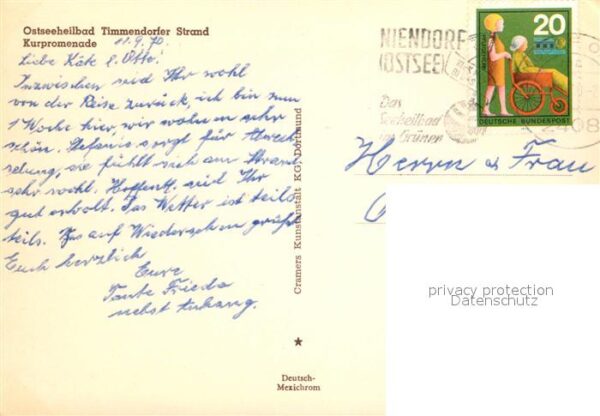 Ostseeheilbad Timmendorfer Strand
Kurpromenade
11.9.70.
Liebe Käte & Otto!
Inzwischen seid Ihr wohl
von der Reise zurück, ich bin nun
1 Woche hier, wir wohnen sehr
schön. Stefanie sorgt für Abwech-
selung, sie fühlt sich am Strand
sehr wohl. Hoffentl. seid Ihr
gut erholt. Das Wetter ist teils
teils. Bis auf Wiedersehen grüßt
Euch herzlich
Eure
Tante Frieda
nebst Anhang.
Cramers Kunstanstalt KG, Dortmund
★
Deutsch-
Mexichrom
NIENDORF
(OSTSEE)
Das
Seeheilbad
im Grünen
20
DEUTSCHE BUNDESPOST
2408
Herrn u Frau
privacy protection
Datenschutz